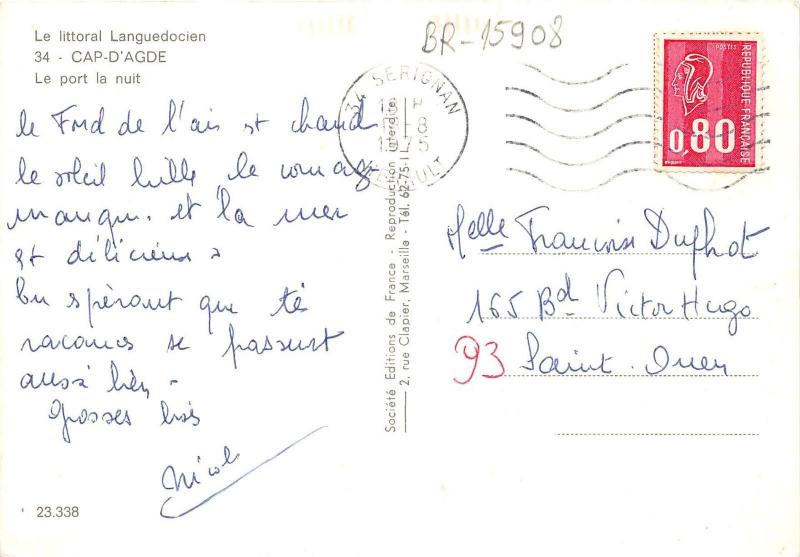 Le littoral Languedocien
34 - CAP-D'AGDE
Le port la nuit
BR-15908
34 SERIGNAN
HERAULT
POSTES
REPUBLIQUE FRANÇAISE
0,80
le fond de l'air est chaud
le soleil brille le
manque. et la mer
est délicieuse
En espérant que tes
vacances se passent
aussi bien -
Grosses bises
Nicole
23.338
Société Editions de France - Reproduction interdite
2, rue Clapier, Marseille - Tél. 62-75-11
Melle Francoise Duphot
165 Bd Victor Hugo
93 Saint. Ouen